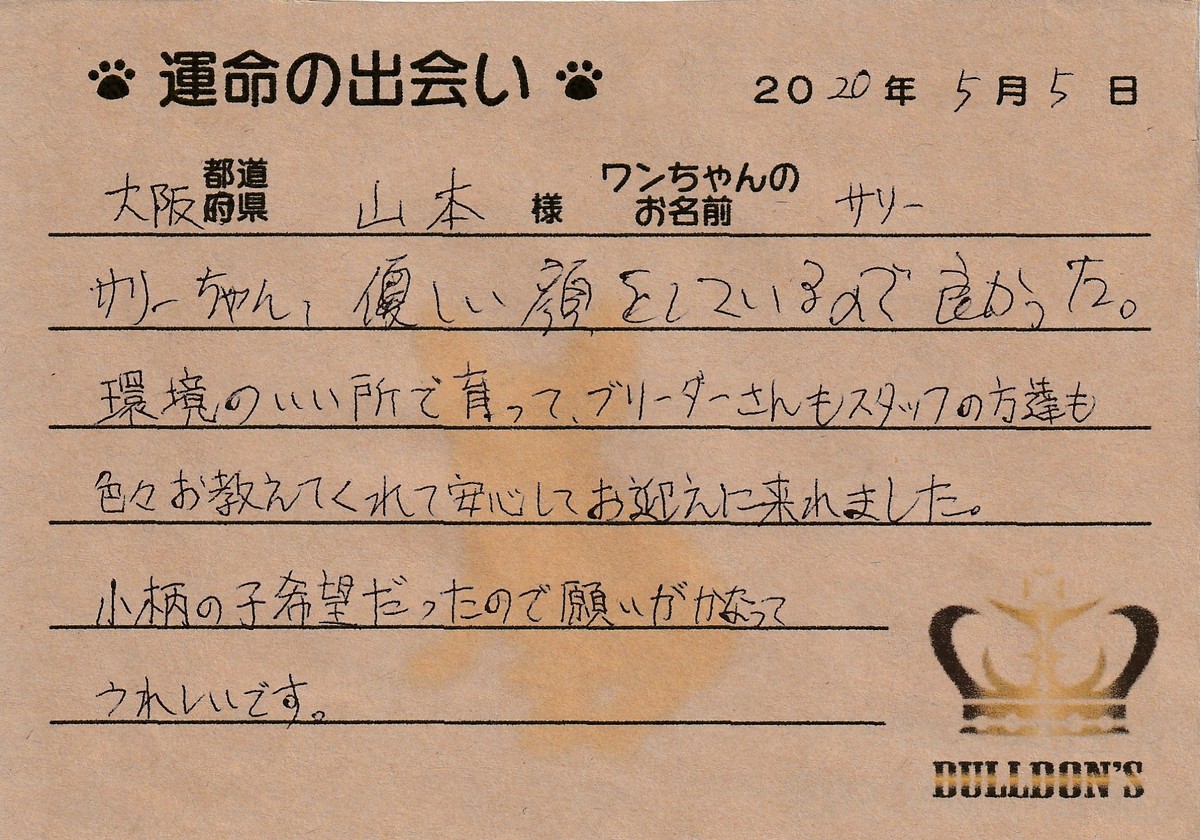 運命の出会い 2020年 5月 5日
大阪 都道府県 山本 様 ワンちゃんのお名前 サリー
サリーちゃん、優しい顔をしているので良かった。
環境のいい所で育って、ブリーダーさんもスタッフの方達も
色々お教えてくれて安心してお迎えに来れました。
小柄の子希望だったので願いがかなって
うれしいです。
BULLDON'S